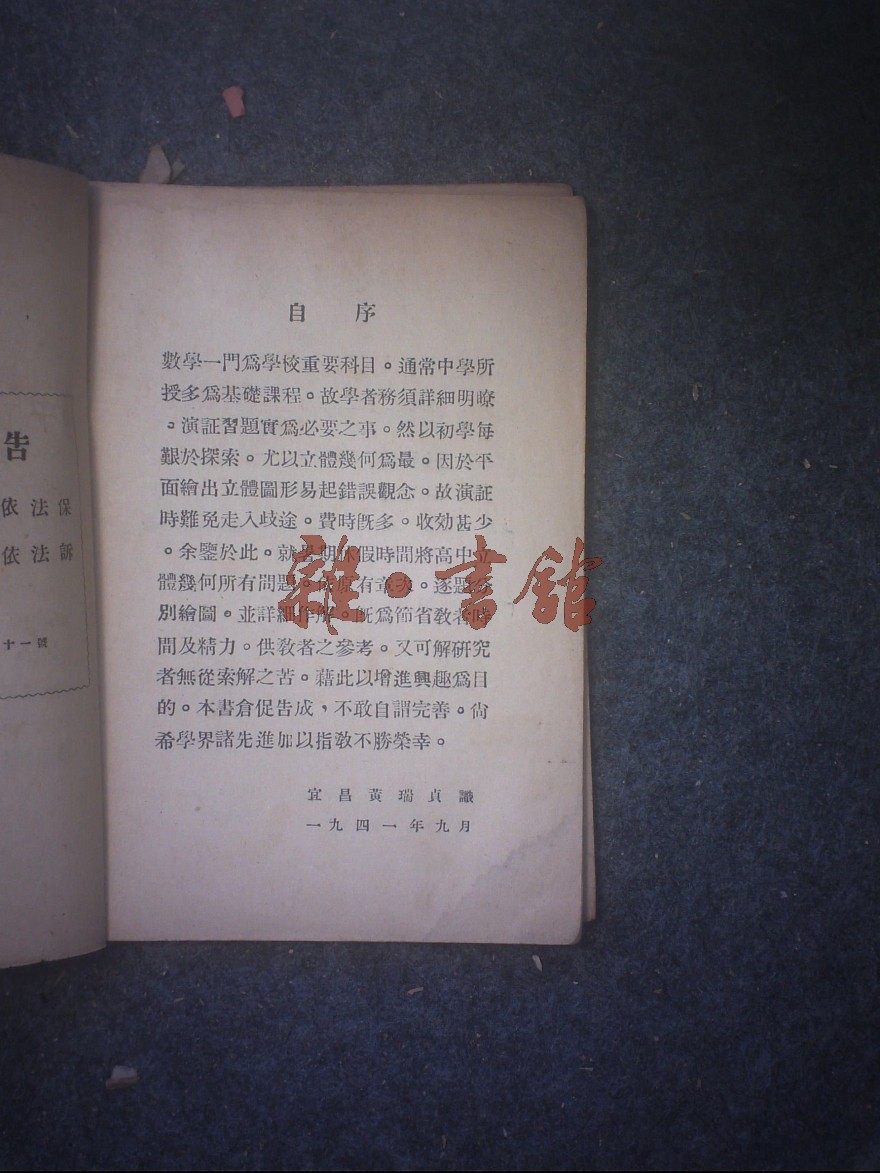 自序
數學一門爲學校重要科目。通常中學所
授多爲基礎課程。故學者務須詳細明瞭
。演証習題實爲必要之事。然以初學每
艱於探索。尤以立體幾何爲最。因於平
面繪出立體圖形易起錯誤觀念。故演証
時難免走入歧途。費時既多。收効甚少
。余鑒於此。就暑期休假時間將高中立
體幾何所有問題。依原有章次。逐題分
別繪圖。並詳細作解。既爲節省教者時
間及精力。供教者之參考。又可解研究
者無從索解之苦。藉此以增進興趣爲目
的。本書倉促告成，不敢自謂完善。尙
希學界諸先進加以指教不勝榮幸。
宜昌黃瑞貞識
一九四一年九月
告
依法保
依法訴
十一號
雜·書館